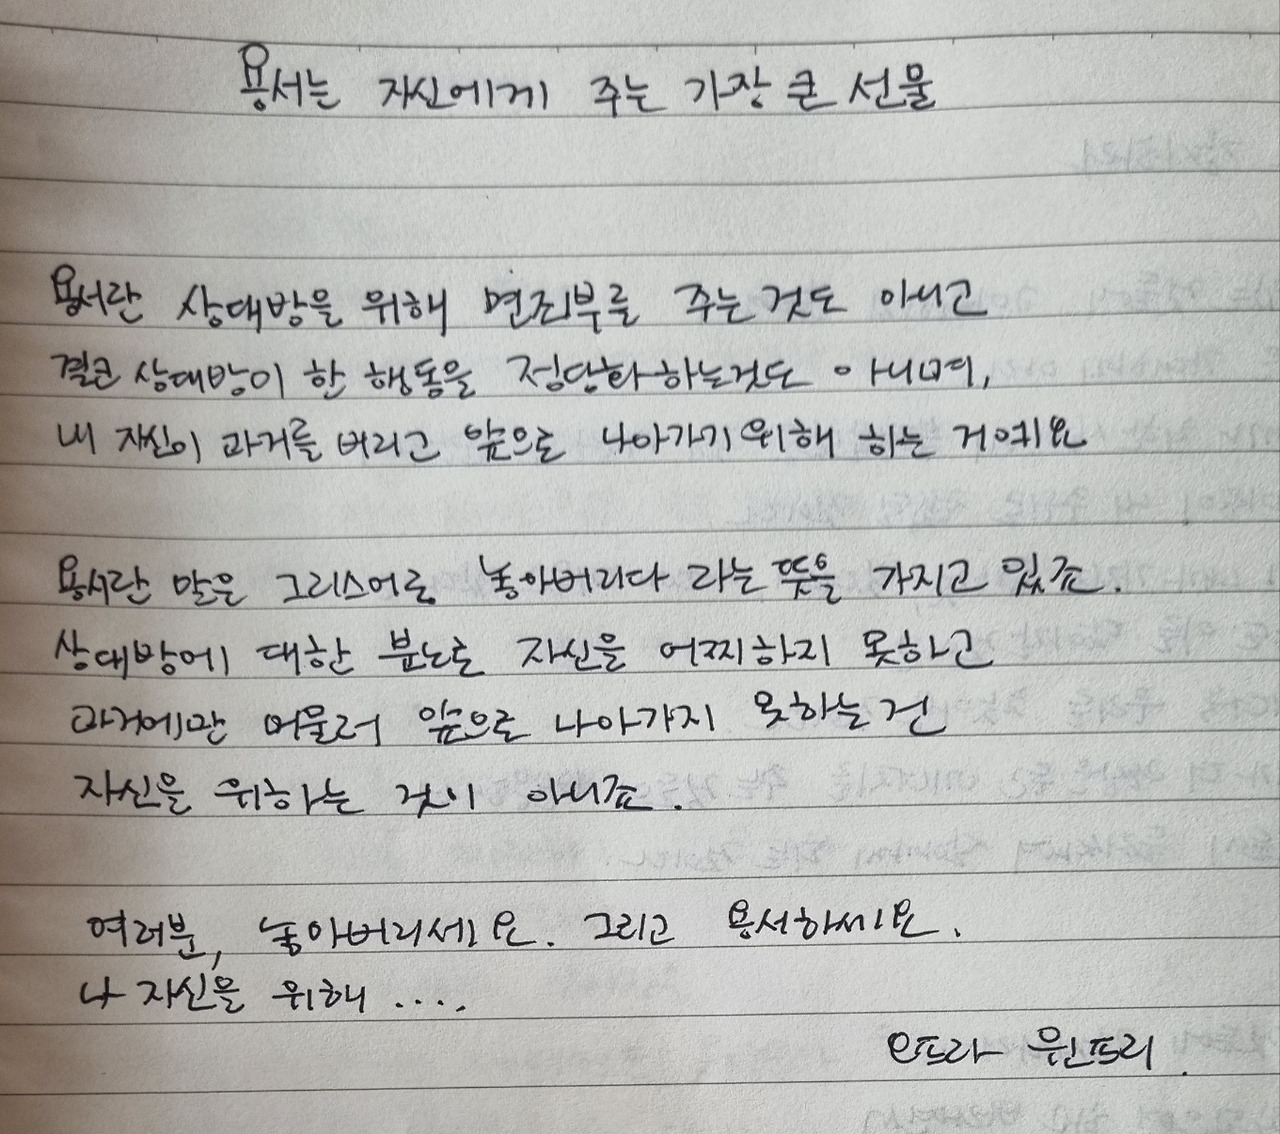 용서는 자신에게 주는 가장 큰 선물
용서란 상대방을 위해 면죄부를 주는것도 아니고
결코 상대방이 한 행동을 정당화하는것도 아니며,
내 자신이 과거를 버리고 앞으로 나아가기위해 하는 거예요
용서란 말은 그리스어로 놓아버리다 라는 뜻을 가지고 있죠.
상대방에 대한 분노로 자신을 어찌하지 못하고
과거에만 머물러 앞으로 나아가지 못하는건
자신을 위하는 것이 아니죠.
여러분, 놓아버리세요. 그리고 용서하세요.
나 자신을 위해 ....
오프라 윈프리.